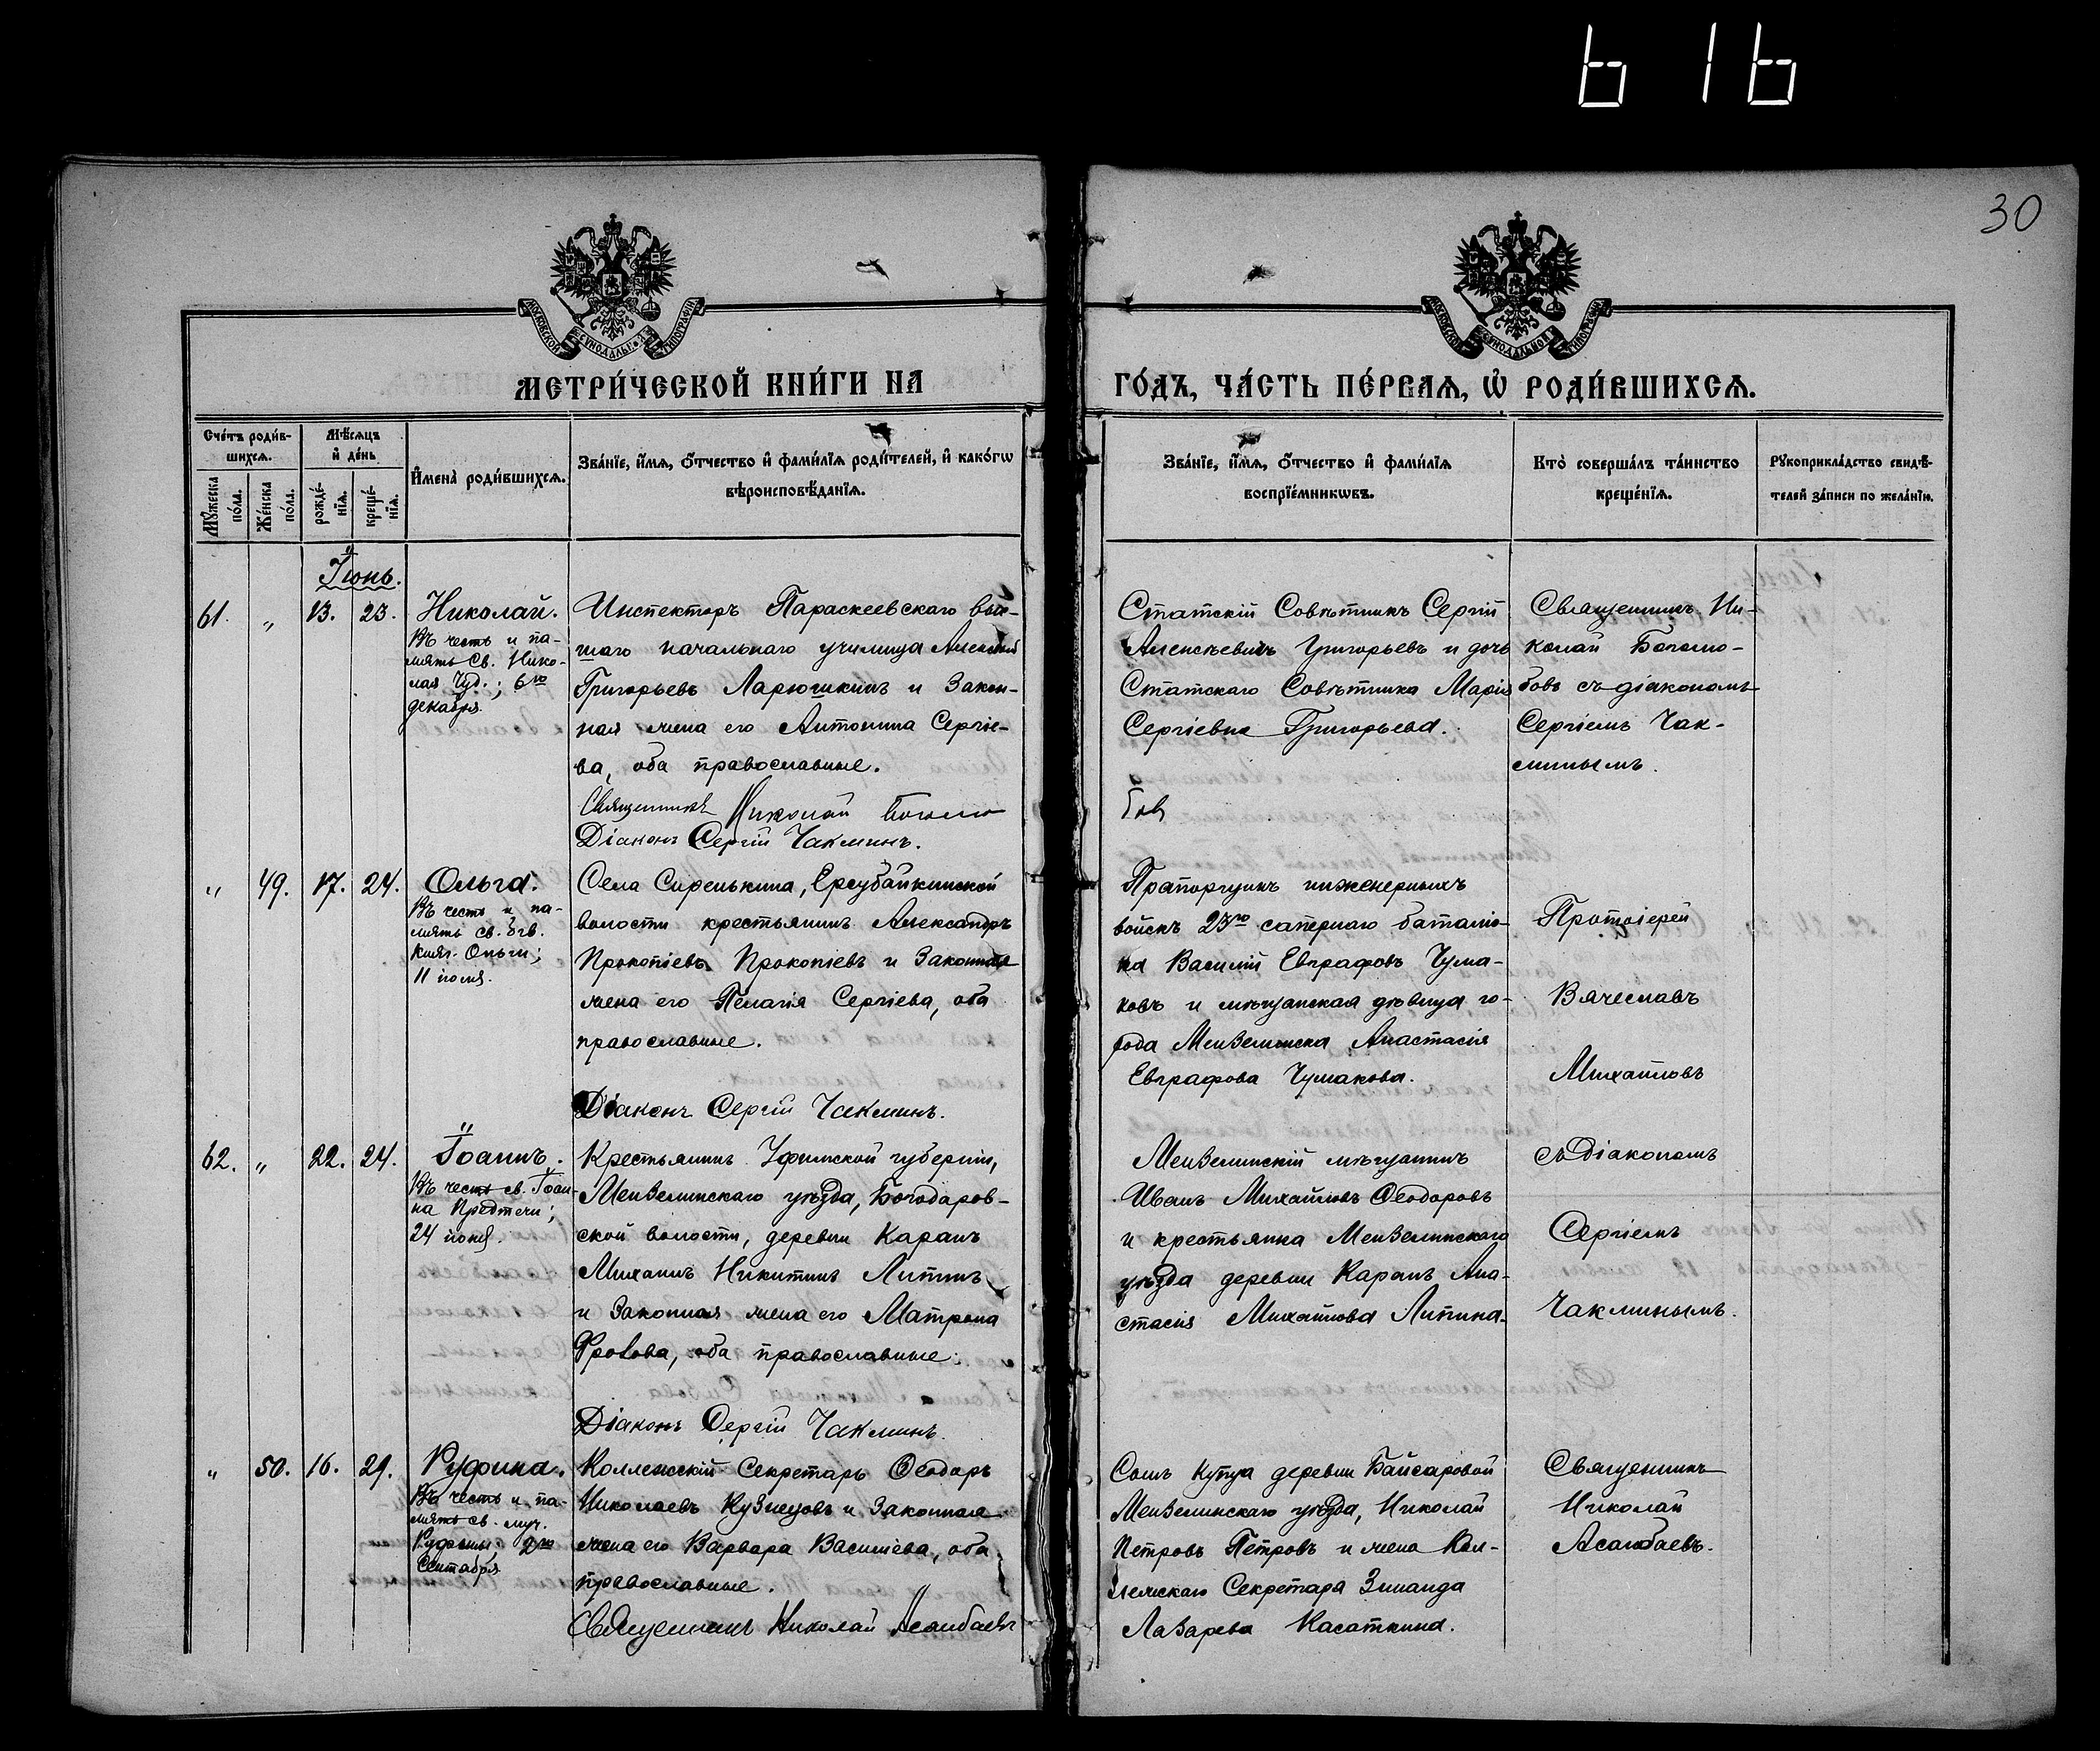 616
30
МОСКОВСКОЙ СѴНОДАЛЬНОЙ ТИПОГРАФІИ
МОСКОВСКОЙ СѴНОДАЛЬНОЙ ТИПОГРАФІИ
МЕТРИ́ЧЕСКОЙ КНИ́ГИ НА
ГО́ДЪ, ЧА́СТЬ ПЕ́РВАѦ, Ѡ РОДИ́ВШИХСѦ.
Сче́тъ роди́в-
шихсѧ.
Мѣ́сѧцъ
и де́нь
Мꙋ́жеска по́ла.
Же́нска по́ла.
рожде́-
нїѧ.
креще́-
нїѧ.
И҆мена̀ роди́вшихсѧ.
Зва́нїе, и҆́мѧ, ѻ҆́тчество и҆ фами́лїѧ роди́телей, и҆ како́гѡ
вѣроисповѣ́данїѧ.
Зва́нїе, и҆́мѧ, ѻ҆́тчество и҆ фами́лїѧ
воспрїе́мникѡвъ.
Кто̀ соверша́лъ та́инство
креще́нїѧ.
Рꙋкоприкла́дство свидѣ́-
телей за́писи по жела́нїю.
Іюнь.
61. „ 13. 23. Николай.
Въ честь и па-
мять Св. Нико-
лая Чуд.; 6го
декабря.
Инспекторъ Параскеевскаго выс-
шаго начальнаго училища Алексѣй
Григорьевъ Ларюшкинъ и закон-
ная жена его Антонина Сергіе-
ва, оба православные.
Священникъ Николай Боголю
Діаконъ Сергій Чакминъ.
Статскій Совѣтникъ Сергій
Алексѣевичъ Григорьевъ и дочь
Статскаго Совѣтника Марія
Сергіевна Григорьева.
бовъ
Священникъ Ни-
колай Боголю-
бовъ съ діакономъ
Сергіемъ Чак-
минымъ.
„ 49. 17. 24. Ольга.
Въ честь и па-
мять св. блгв.
княг. Ольги;
11 іюля.
Села Сиренькина, Ерсубайкинской
волости крестьянинъ Александръ
Прокопіевъ Прокопіевъ и законная
жена его Пелагія Сергіева, оба
православные.
Діаконъ Сергій Чакминъ.
Прапорщикъ инженерныхъ
войскъ 23го сапернаго баталіо-
на Василій Евграфовъ Чума-
ковъ и мѣщанская дѣвица го-
рода Мензелинска Анастасія
Евграфова Чумакова.
Протоіерей
Вячеславъ
Михайловъ
62. „ 22. 24. Іоаннъ.
Въ честь св. Іоан-
на Предтечи;
24 іюня.
Крестьянинъ Уфимской губерніи,
Мензелинскаго уѣзда, Богодаров-
ской волости, деревни Каранъ
Михаилъ Никитинъ Липинъ
и законная жена его Матрона
Фролова, оба православные.
Діаконъ Сергій Чакминъ.
Мензелинскій мѣщанинъ
Иванъ Михайловъ Ѳеодоровъ
и крестьянка Мензелинскаго
уѣзда деревни Каранъ Ана-
стасія Михайлова Липина.
съ Діакономъ
Сергіемъ
Чакминымъ.
„ 50. 16. 29. Руфина.
Въ честь и па-
мять св. муч.
Руфины 2го
Сентября.
Коллежскій Секретарь Ѳеодоръ
Николаевъ Кузнецовъ и законная
жена его Варвара Васильева, оба
православные.
Священникъ Николай Асанбаевъ
Сынъ купца деревни Байсаровой
Мензелинскаго уѣзда, Николай
Петровъ Петровъ и жена Кол-
лежскаго Секретаря Зинаида
Лазарева Касаткина.
Священникъ
Николай
Асанбаевъ.